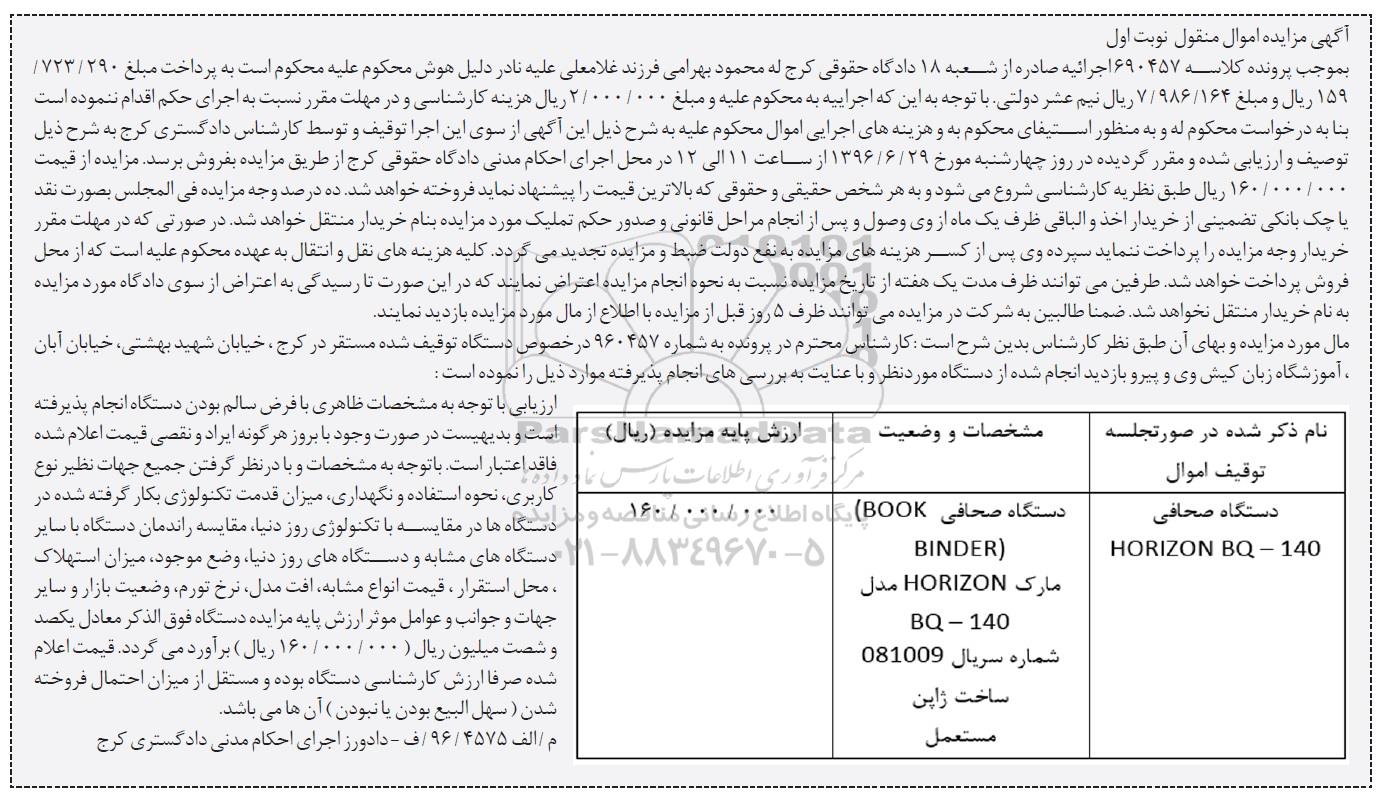 آگهی مزایده اموال منقول نوبت اول
بموجب پرونده کلاسه ۶۹۰۴۵۷ اجرائیه صادره از شعبه ۱۸ دادگاه حقوقی کرج له محمود بهرامی فرزند غلامعلی علیه نادر دلیل هوش محکوم علیه محکوم است به پرداخت مبلغ ۷۲۳/۲۹۰/
۱۵۹ ریال و مبلغ ۷/۹۸۶/۱۶۴ ریال نیم عشر دولتی. با توجه به این که اجراییه به محکوم علیه و مبلغ ۲/۰۰۰/۰۰۰ ریال هزینه کارشناسی و در مهلت مقرر نسبت به اجرای حکم اقدام ننموده است
بنا به درخواست محکوم له و به منظور استیفای محکوم به و هزینه های اجرایی اموال محکوم علیه به شرح ذیل این آگهی از سوی این اجرا توقیف و توسط کارشناس دادگستری کرج به شرح ذیل
توصیف و ارزیابی شده و مقرر گردیده در روز چهارشنبه مورخ ۱۳۹۶/۶/۲۹ از ساعت ۱۱ الی ۱۲ در محل اجرای احکام مدنی دادگاه حقوقی کرج از طریق مزایده بفروش برسد. مزایده از قیمت
۱۶۰/۰۰۰/۰۰۰ ریال طبق نظریه کارشناسی شروع می شود و به هر شخص حقیقی و حقوقی که بالاترین قیمت را پیشنهاد نماید فروخته خواهد شد. ده درصد وجه مزایده فی المجلس بصورت نقد
یا چک بانکی تضمینی از خریدار اخذ و الباقی ظرف یک ماه از وی وصول و پس از انجام مراحل قانونی و صدور حکم تملیک مورد مزایده بنام خریدار منتقل خواهد شد. در صورتی که در مهلت مقرر
خریدار وجه مزایده را پرداخت ننماید سپرده وی پس از کسر هزینه های مزایده به نفع دولت ضبط و مزایده تجدید می گردد. کلیه هزینه های نقل و انتقال به عهده محکوم علیه است که از محل
فروش پرداخت خواهد شد. طرفین می توانند ظرف مدت یک هفته از تاریخ مزایده نسبت به نحوه انجام مزایده اعتراض نمایند که در این صورت تا رسیدگی به اعتراض از سوی دادگاه مورد مزایده
به نام خریدار منتقل نخواهد شد. ضمنا طالبین به شرکت در مزایده می توانند ظرف ۵ روز قبل از مزایده با اطلاع از مال مورد مزایده بازدید نمایند.
مال مورد مزایده و بهای آن طبق نظر کارشناس بدین شرح است : کارشناس محترم در پرونده به شماره ۹۶۰۴۵۷ درخصوص دستگاه توقیف شده مستقر در کرج ، خیابان شهید بهشتی، خیابان آبان
، آموزشگاه زبان کیش وی و پیرو بازدید انجام شده از دستگاه موردنظر و با عنایت به بررسی های انجام پذیرفته موارد ذیل را نموده است :
نام ذکر شده در صورتجلسه
توقیف اموال
مشخصات و وضعیت
ارزش پایه مزایده (ریال)
دستگاه صحافی
HORIZON BQ – 140
دستگاه صحافی (BOOK
BINDER)
مارک HORIZON مدل
BQ – 140
شماره سریال 081009
ساخت ژاپن
مستعمل
۱۶۰/۰۰۰/۰۰۰
ارزیابی با توجه به مشخصات ظاهری با فرض سالم بودن دستگاه انجام پذیرفته
است و بدیهیست در صورت وجود یا بروز هر گونه ایراد و نقصی قیمت اعلام شده
فاقد اعتبار است. باتوجه به مشخصات و با درنظر گرفتن جمیع جهات نظیر نوع
کاربری، نحوه استفاده و نگهداری، میزان قدمت تکنولوژی بکار گرفته شده در
دستگاه ها در مقایسه با تکنولوژی روز دنیا، مقایسه راندمان دستگاه با سایر
دستگاه های مشابه و دستگاه های روز دنیا، وضع موجود، میزان استهلاک
، محل استقرار ، قیمت انواع مشابه، افت مدل، نرخ تورم، وضعیت بازار و سایر
جهات و جوانب و عوامل موثر ارزش پایه مزایده دستگاه فوق الذکر معادل یکصد
و شصت میلیون ریال ( ۱۶۰/۰۰۰/۰۰۰ ریال ) برآورد می گردد. قیمت اعلام
شده صرفا ارزش کارشناسی دستگاه بوده و مستقل از میزان احتمال فروخته
شدن ( سهل البیع بودن یا نبودن ) آن ها می باشد.
م /الف ۹۶/۴۵۷۵ /ف - دادورز اجرای احکام مدنی دادگستری کرج
ParsNamadData
مرکز فرآوری اطلاعات پارس نماد داده ها
پایگاه اطلاع رسانی مناقصه و مزایده
۰۲۱-۸۸۳۴۹۶۷۰-۵